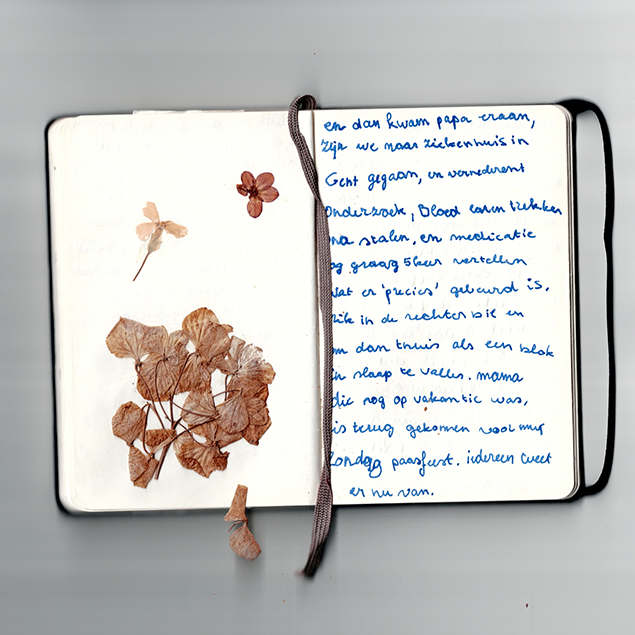 en dan kwam papa eraan,
zijn we naar ziekenhuis in
Gent gegaan, en vernederent
onderzoek, Bloed laten trekken
stalen, en medicatie
graag 5 keer vertellen
wat er 'precies' gebeurd is.
in de rechter bil en
om dan thuis als een blok
in slaap te vallen. mama
die nog op vakantie was,
is terug gekomen voor mij
Zondag paasfeest. iedereen weet
er nu van.